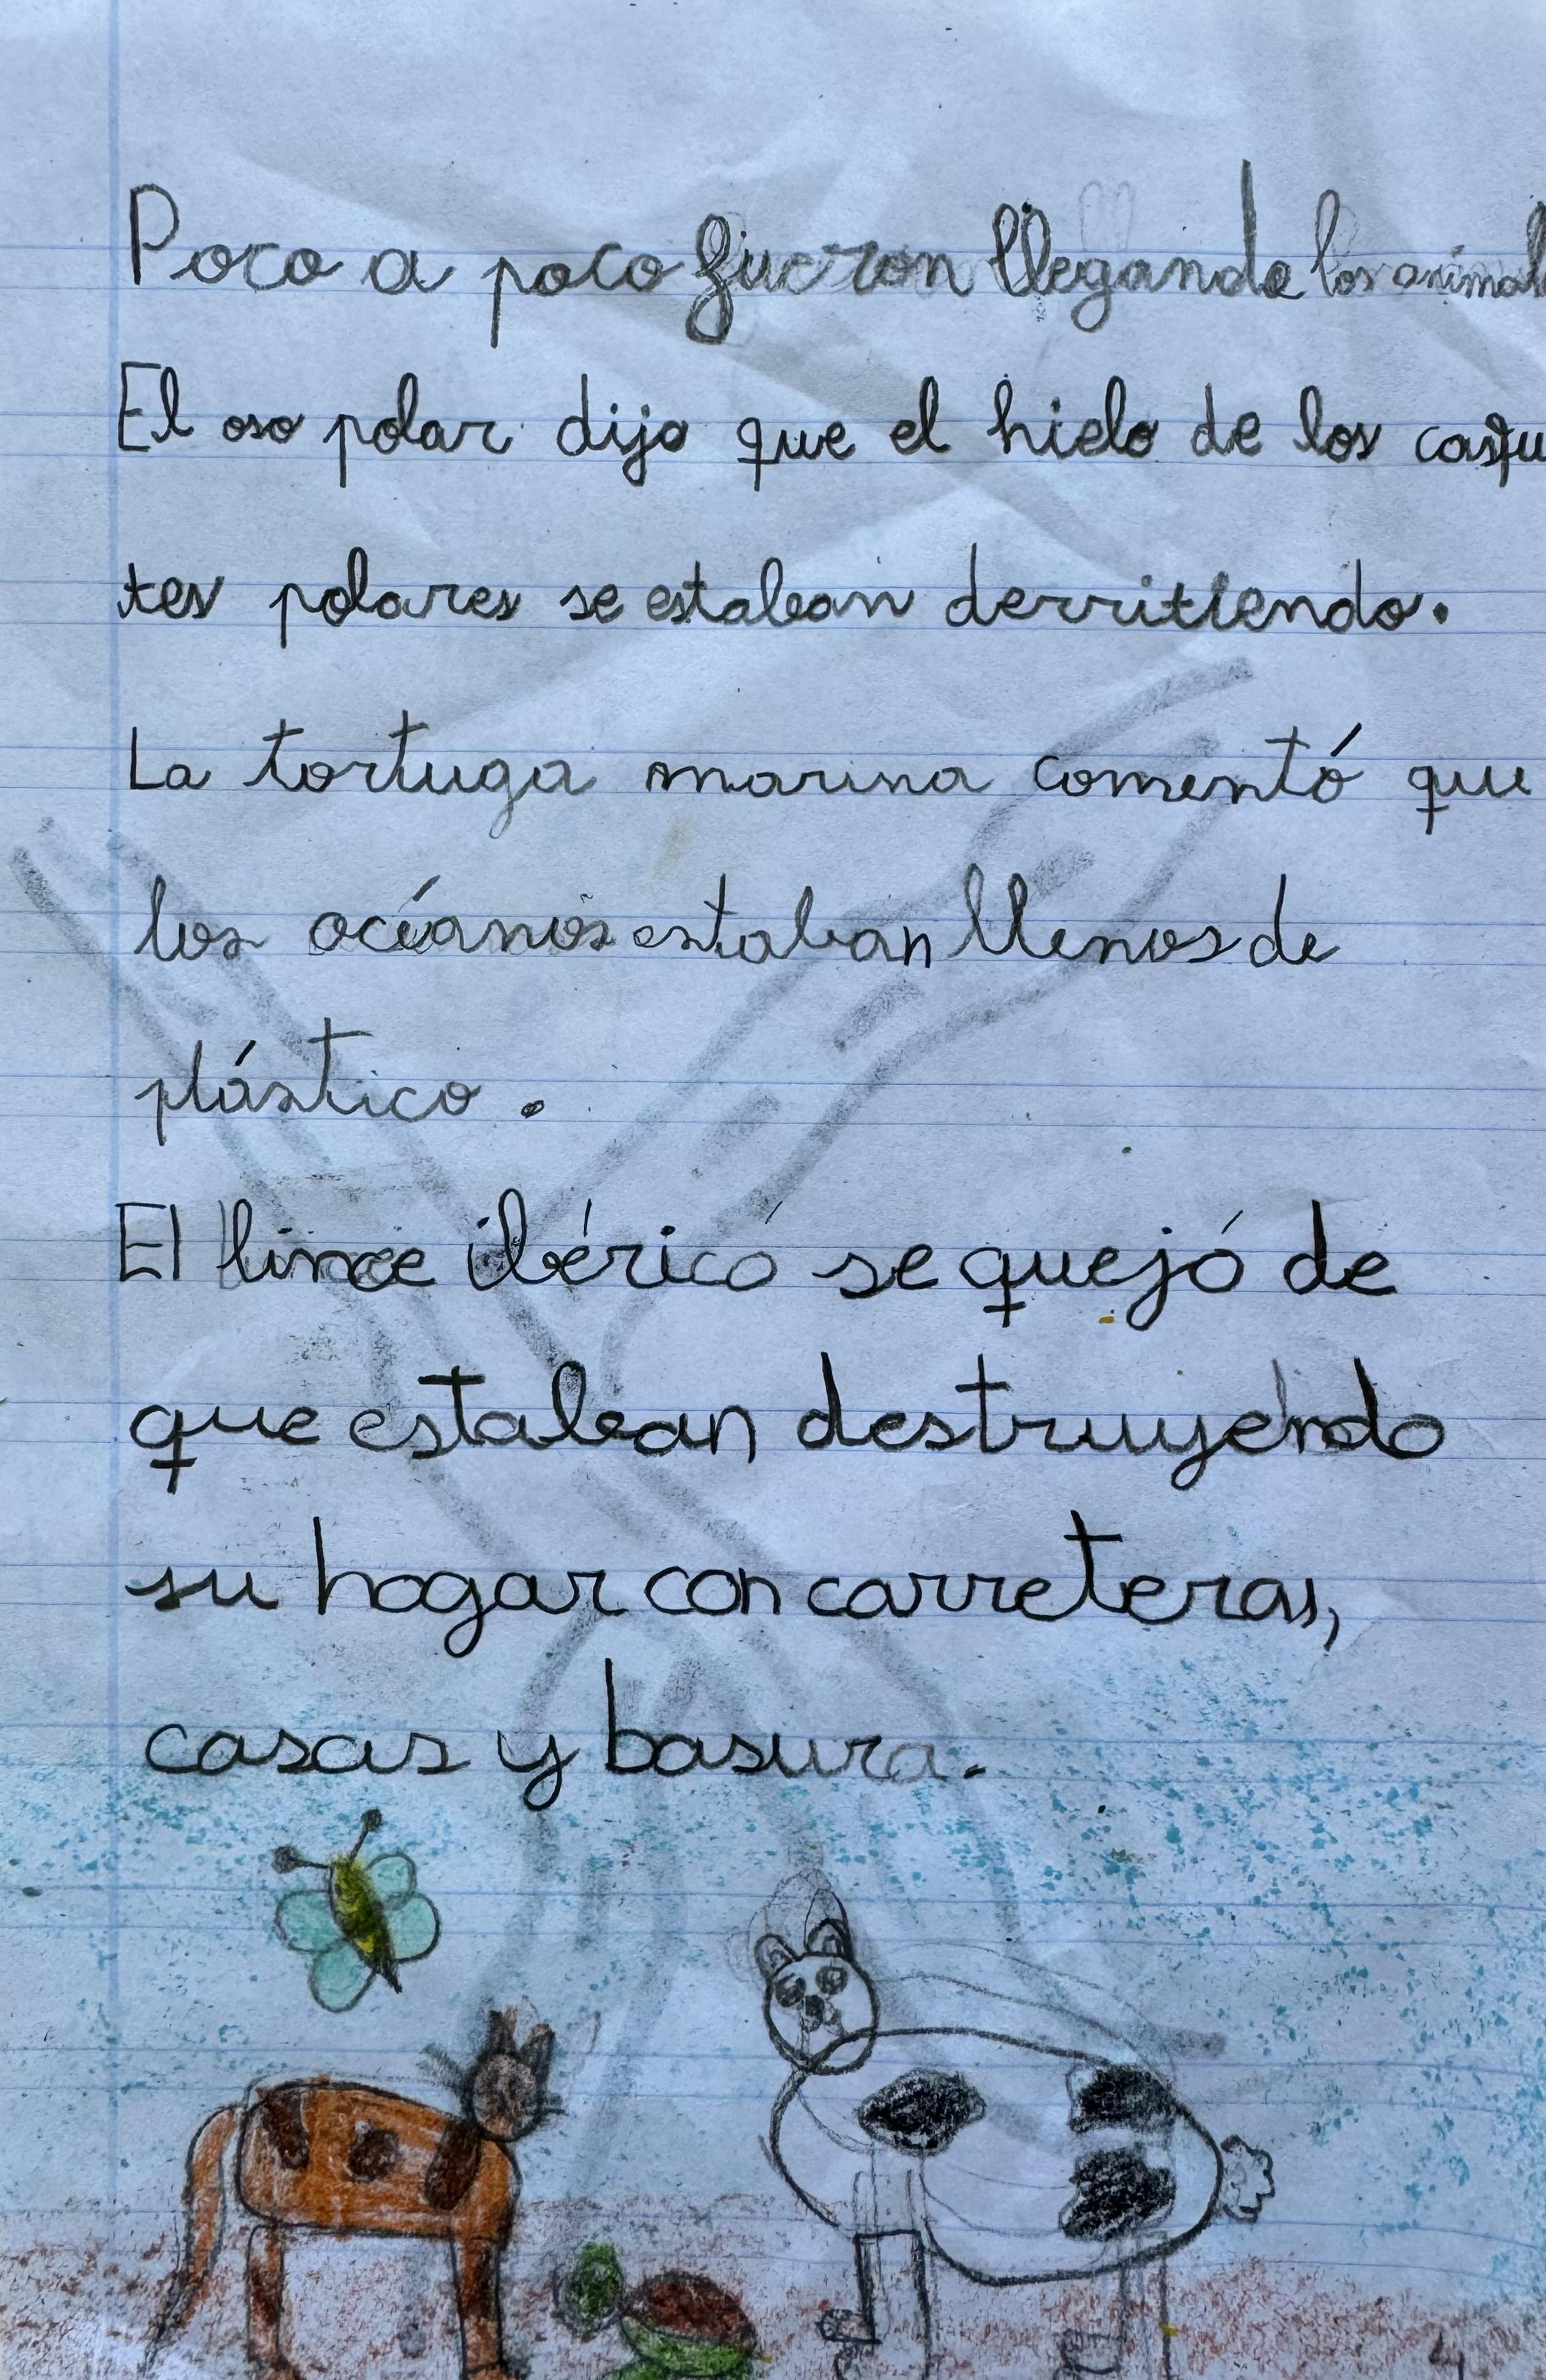 Poco a poco fueron llegando los animal
El oso polar dijo que el hielo de los casqu
tes polares se estaban derritiendo.
La tortuga marina comentó que
los océanos estaban llenos de
plástico.
El lince ibérico se quejó de
que estaban destruyendo
su hogar con carreteras,
casas y basura.